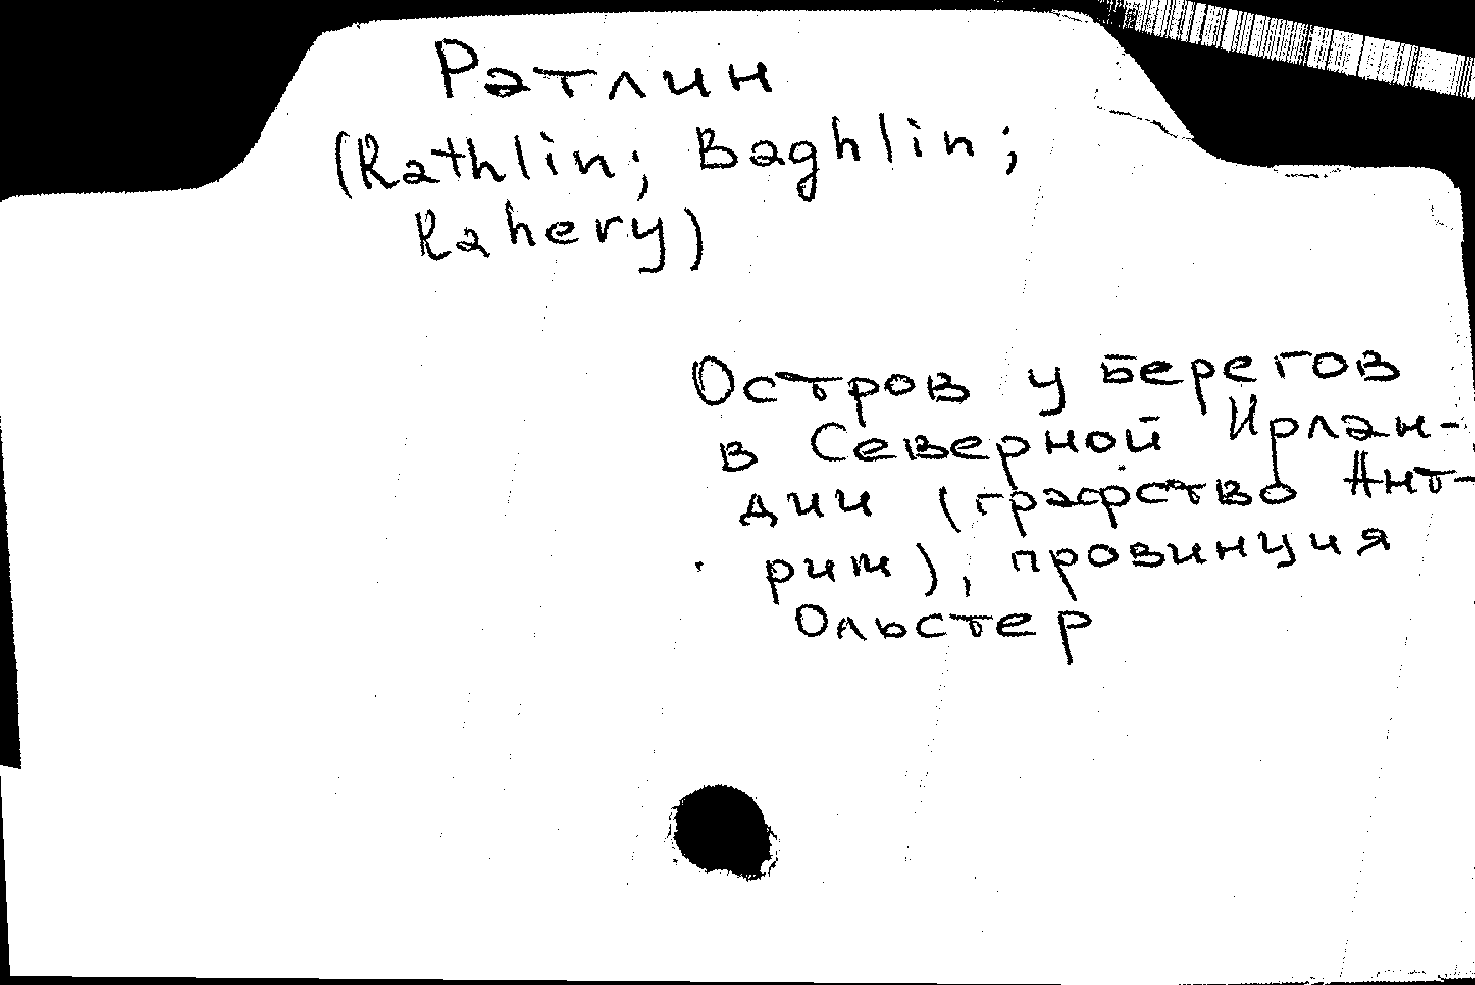 Ратлин
(Rathlin; Baghlin;
Rahery)
Остров у берегов
в Северной Ирлан-
дии (графство Ант-
рим), провинция
Ольстер